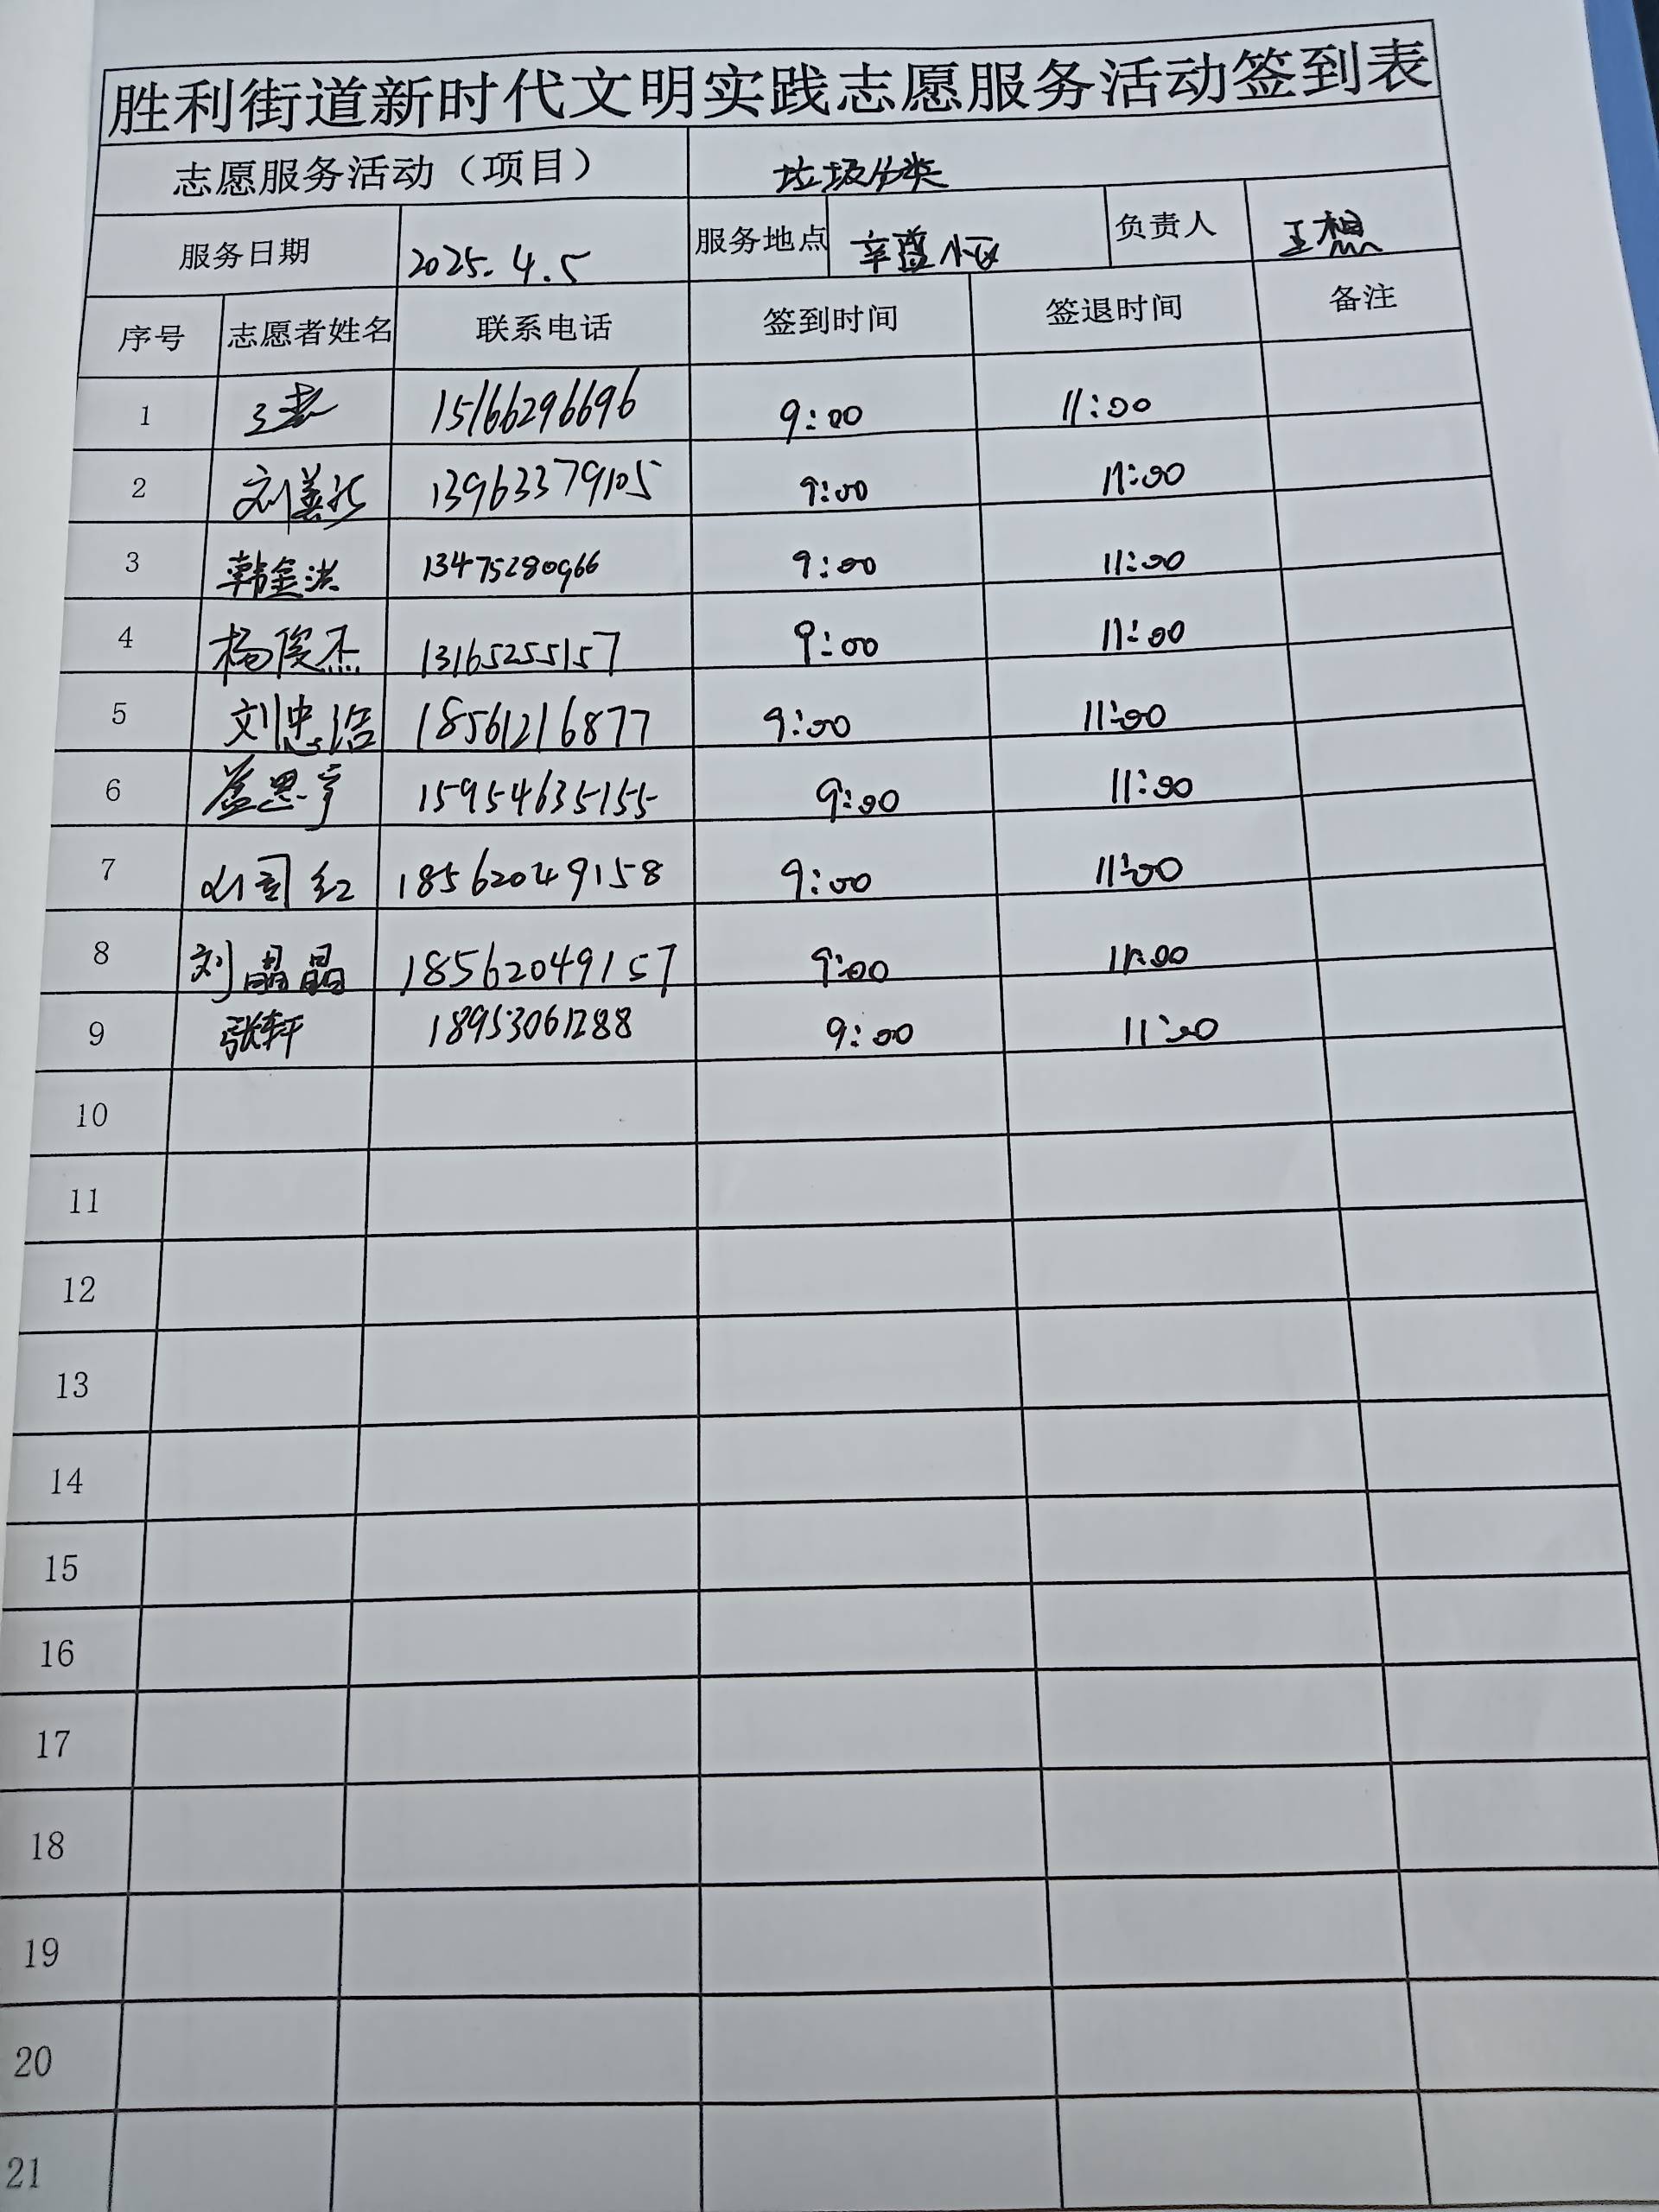 胜利街道新时代文明实践志愿服务活动签到表
志愿服务活动（项目） 垃圾分类
服务日期 2025.4.5 服务地点 辛小区 负责人 王想
序号 志愿者姓名 联系电话 签到时间 签退时间 备注
1 15166296696 9:00 11:00
2 刘 13963379105 9:00 11:00
3 韩金洪 13475280966 9:00 11:00
4 杨俊杰 13165255157 9:00 11:00
5 刘忠浩 18561216877 9:00 11:00
6 盖思宇 15954635155 9:00 11:00
7 红 18562049158 9:00 11:00
8 刘晶晶 18562049157 9:00 11:00
9 张轩 18953061288 9:00 11:00
10
11
12
13
14
15
16
17
18
19
20
21